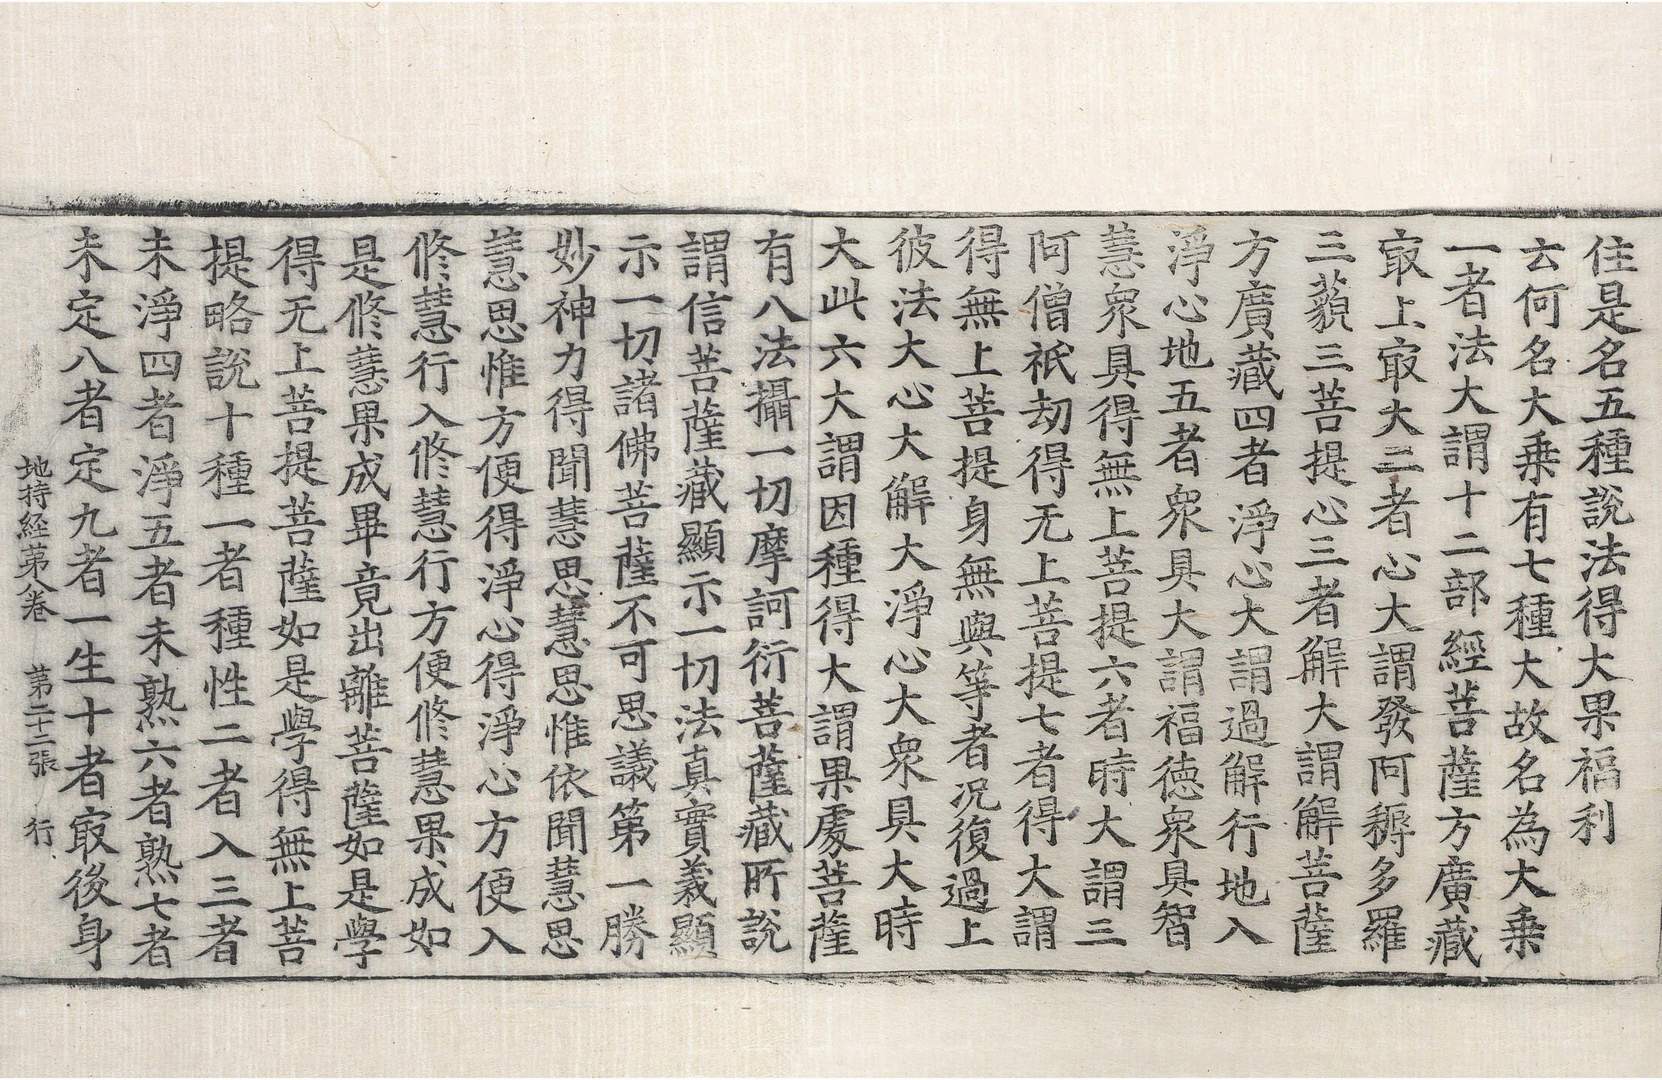 住是名五種說法得大果福利
云何名大乗有七種大故名為大乗
一者法大謂十二部經菩薩方廣藏
㝡上㝡大二者心大謂發阿耨多羅
三藐三菩提心三者解大謂解菩薩
方廣藏四者淨心大謂過解行地入
淨心地五者衆具大謂福德衆具智
慧衆具得無上菩提六者時大謂三
阿僧祇劫得无上菩提七者得大謂
得無上菩提身無與等者况復過上
彼法大心大解大淨心大衆具大時
大此六大謂因種得大謂果處菩薩
有八法攝一切摩訶衍菩薩藏所說
謂信菩薩藏顯示一切法真實義顯
示一切諸佛菩薩不可思議第一勝
妙神力得聞慧思慧思惟依聞慧思
慧思惟方便得淨心得淨心方便入
修慧行入修慧行方便修慧果成如
是修慧果成畢竟出離菩薩如是學
得无上菩提菩薩如是學得無上菩
提略說十種一者種性二者入三者
未淨四者淨五者未熟六者熟七者
未定八者定九者一生十者㝡後身
地持経第八卷 第二十二張 行